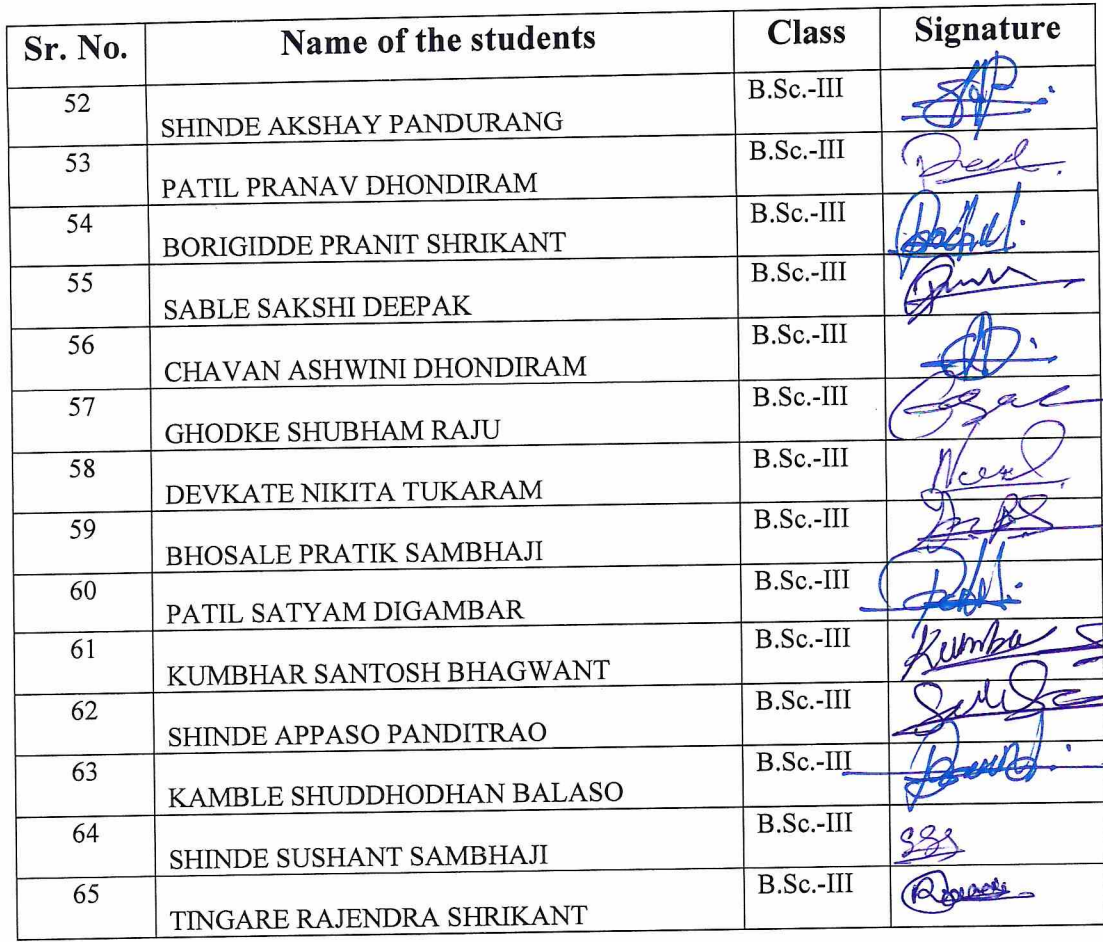 Sr. No. Name of the students Class Signature
52 SHINDE AKSHAY PANDURANG B.Sc.-III
53 PATIL PRANAV DHONDIRAM B.Sc.-III
54 BORIGIDDE PRANIT SHRIKANT B.Sc.-III
55 SABLE SAKSHI DEEPAK B.Sc.-III
56 CHAVAN ASHWINI DHONDIRAM B.Sc.-III
57 GHODKE SHUBHAM RAJU B.Sc.-III
58 DEVKATE NIKITA TUKARAM B.Sc.-III
59 BHOSALE PRATIK SAMBHAJI B.Sc.-III
60 PATIL SATYAM DIGAMBAR B.Sc.-III
61 KUMBHAR SANTOSH BHAGWANT B.Sc.-III
62 SHINDE APPASO PANDITRAO B.Sc.-III
63 KAMBLE SHUDDHODHAN BALASO B.Sc.-III
64 SHINDE SUSHANT SAMBHAJI B.Sc.-III SSS
65 TINGARE RAJENDRA SHRIKANT B.Sc.-III